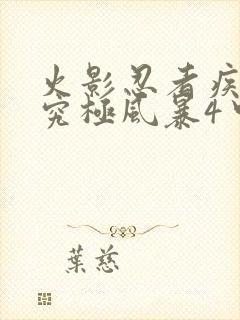 火影忍者疾
究极风暴4中
葉慈